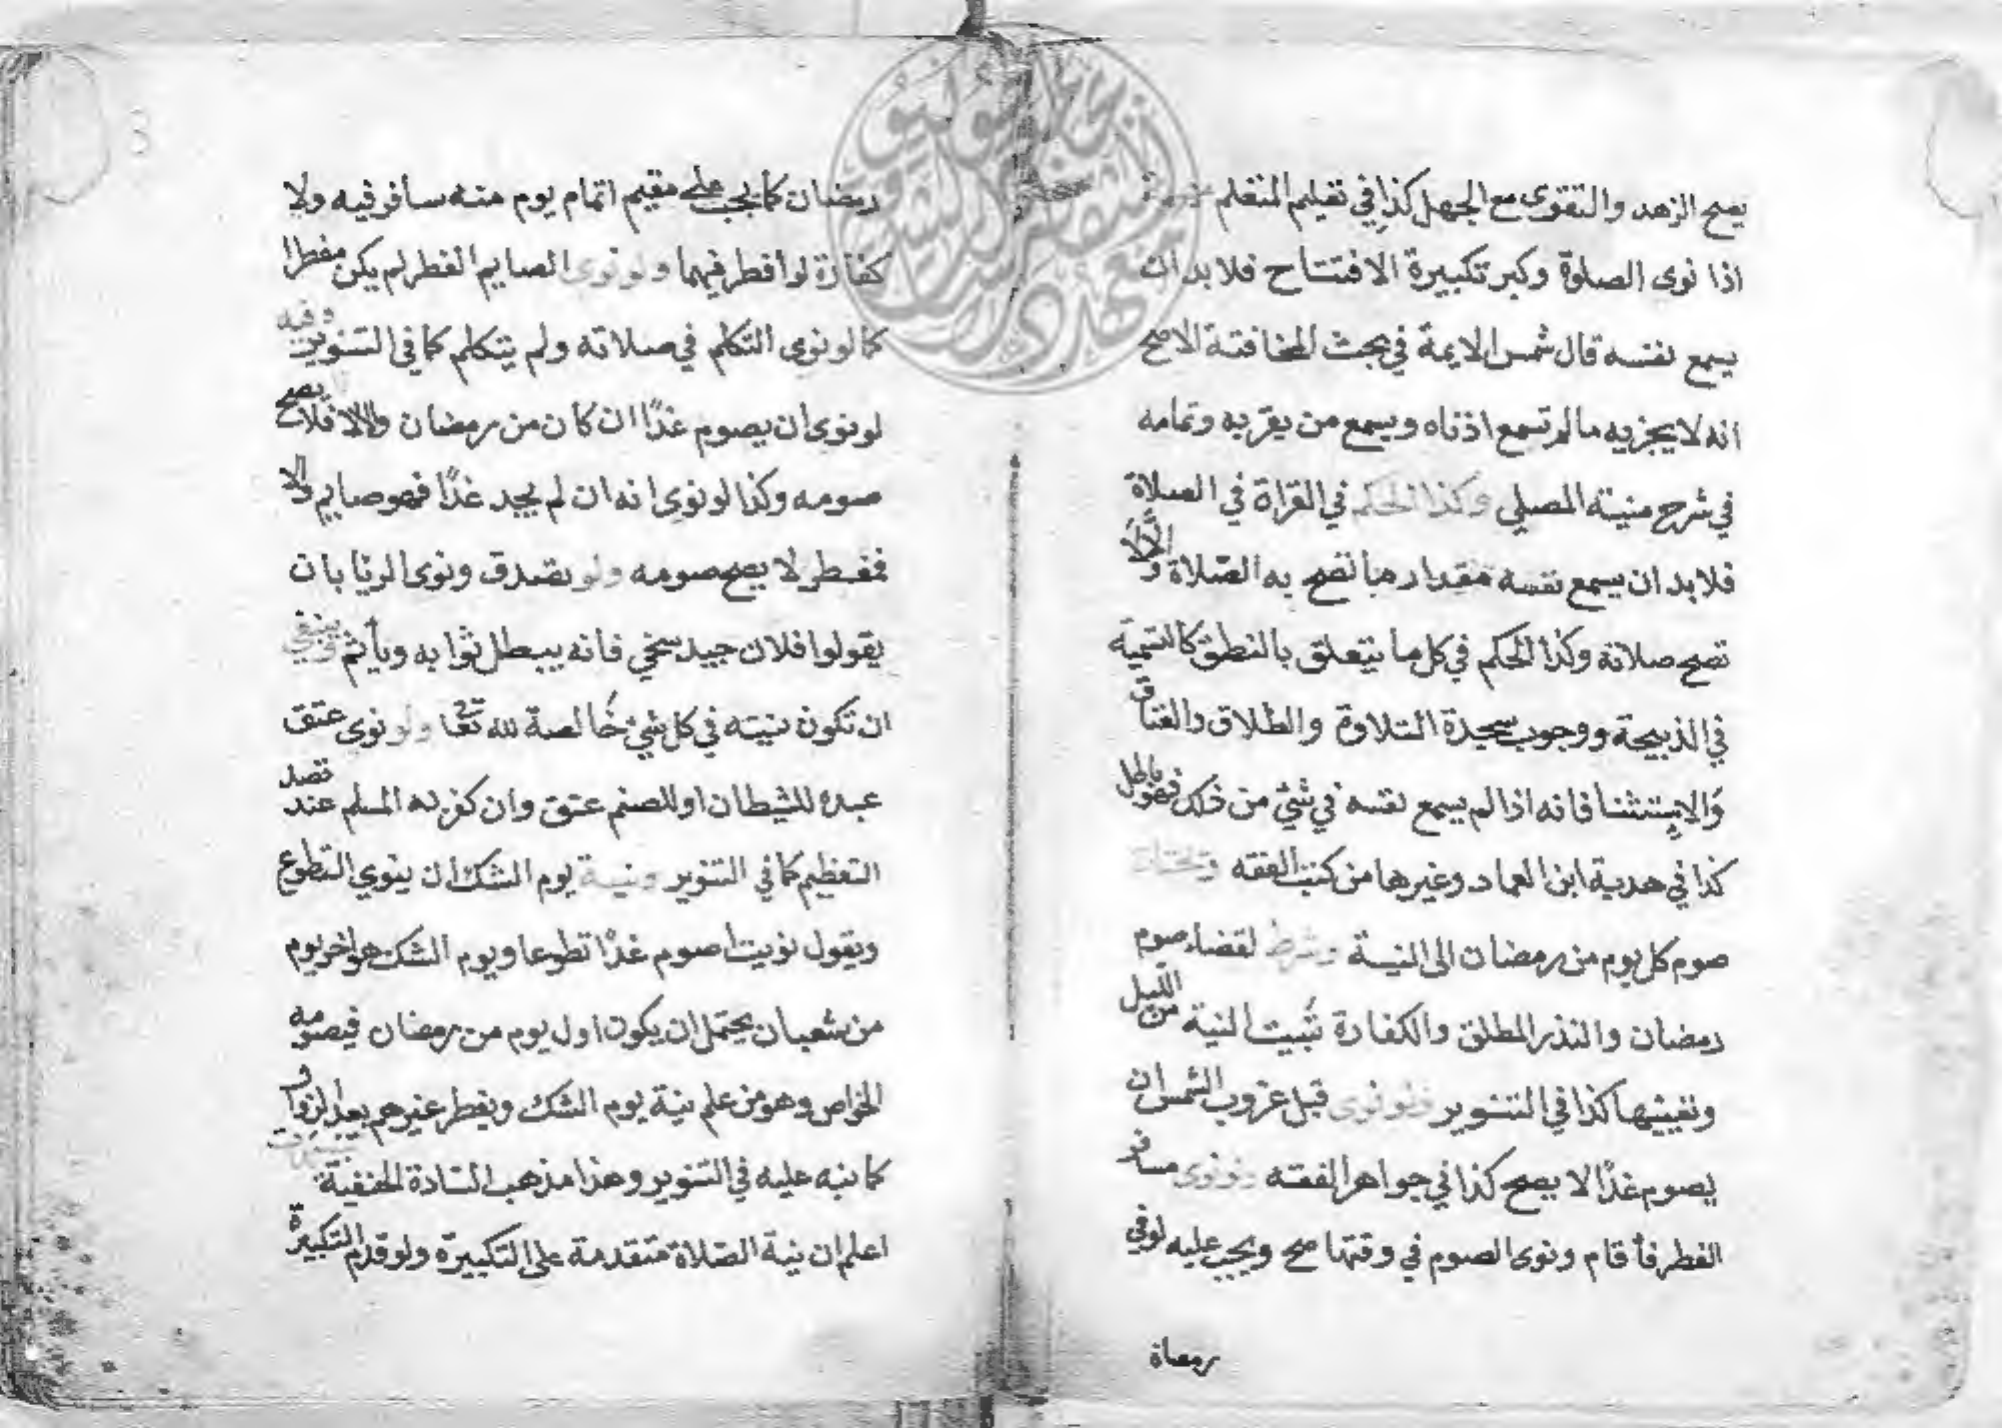 يصح الزهد والتقوى مع الجهل كذا في تعليم المتعلم
اذا نوى الصلوة وكبر تكبيرة الافتتاح فلا بد ان
يسمع نفسه قال شمس الايمة في بحث المخافتة الاصح
انه لا يجزيه ما لم تسمع اذناه ويسمع من يقربه وتمامه
في شرح منية المصلي وكذا الحكم في القراة في الصلاة
فلا بد ان يسمع نفسه مقدار ما تصح به الصلاة والا لا
تصح صلاته وكذا الحكم في كل ما يتعلق بالنطق كالتسمية
في الذبيحة ووجوب سجدة التلاوة والطلاق والعتاق
والاستثنا فانه اذا لم يسمع نفسه في شئ من ذلك فهو باطل
كذا في هدية ابن العماد وغيرها من كتب الفقه ويحتاج
صوم كل يوم من رمضان الى النية وشرط لقضاء صوم
رمضان والنذر المطلق والكفارة تبييت النية من الليل
وتعيينها كذا في التنوير ولو نوى قبل غروب الشمس ان
يصوم غدًا لا يصح كذا في جواهر الفقه ولو نوى مسافر
الفطر فأقام ونوى الصوم في وقتها صح ويجب عليه لو في
رمضان
رمضان كما يجب على مقيم اتمام يوم منه سافر فيه ولا
كفارة لو افطر فيهما ولو نوى الصايم الفطر لم يكن مفطرا
كما لو نوى التكلم في صلاته ولم يتكلم كما في التنوير وفيه
لو نوى ان يصوم غدًا ان كان من رمضان والا فلا يصح
صومه وكذا لو نوى انه ان لم يجد غدًا فهو صايم والا
فمفطر لا يصح صومه ولو تصدق ونوى الريا بان
يقولوا فلان جيد سخي فانه يبطل ثوابه ويأثم وينبغي
ان تكون نيته في كل شئ خالصة لله تعا ولو نوى عتق
عبده للشيطان او للصنم عتق وان كفر به المسلم عند قصد
التعظيم كما في التنوير ونية يوم الشك ان ينوي التطوع
ويقول نويت اصوم غدًا تطوعا ويوم الشك هو اخر يوم
من شعبان يحتمل ان يكون اول يوم من رمضان فيصومه
الخواص وهو من علم نية يوم الشك ويفطر غيرهم بعد الزوال
كما نبه عليه في التنوير وهذا مذهب السادة الحنفية
اعلم ان نية الصلاة متقدمة على التكبيرة ولو قدم التكبيرة